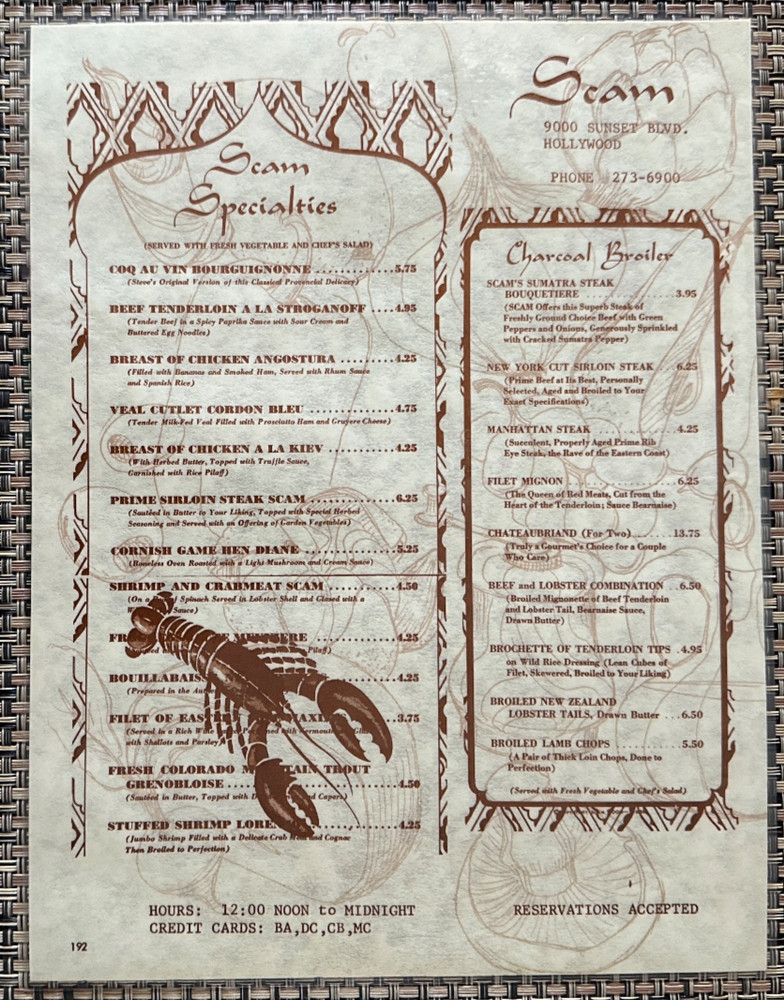 Scam
Specialties
(SERVED WITH FRESH VEGETABLE AND CHEF'S SALAD)
COQ AU VIN BOURGUIGNONNE ..............5.75
(Steve's Original Version of this Classical Provencial Delicacy)
BEEF TENDERLOIN A LA STROGANOFF ....4.95
(Tender Beef in a Spicy Paprika Sauce with Sour Cream and
Buttered Egg Noodles)
BREAST OF CHICKEN ANGOSTURA .........4.25
(Filled with Bananas and Smoked Ham, Served with Rhum Sauce
and Spanish Rice)
VEAL CUTLET CORDON BLEU ...............4.75
(Tender Milk-Fed Veal Filled with Prosciatto Ham and Gruyere Cheese)
BREAST OF CHICKEN A LA KIEV ............4.25
(With Herbed Butter, Topped with Truffle Sauce,
Garnished with Rice Pilaff)
PRIME SIRLOIN STEAK SCAM ...............6.25
(Sautéed in Butter to Your Liking, Topped with Special Herbed
Seasoning and Served with an Offering of Garden Vegetables)
CORNISH GAME HEN DIANE .................5.25
(Boneless Oven Roasted with a Light Mushroom and Cream Sauce)
SHRIMP AND CRABMEAT SCAM .............4.50
(On a Spinach Served in Lobster Shell and Glased with a
Sauce)
4.25
Pilaf)
BOUILLABAIS 4.25
(Prepared in the
FILET OF 3.75
(Served in a Rich with Vermouth
with Shallots and Parsley
FRESH COLORADO MOUNTAIN TROUT
GRENOBLOISE 4.50
(Sautéed in Butter, Topped with Capers)
STUFFED SHRIMP 4.25
(Jumbo Shrimp Filled with a Delicate Crab Meat and Cognac
Then Broiled to Perfection)
Scam
9000 SUNSET BLVD.
HOLLYWOOD
PHONE 273-6900
Charcoal Broiler
SCAM'S SUMATRA STEAK
BOUQUETIERE ........................3.95
(SCAM Offers this Superb Steak of
Freshly Ground Choice Beef with Green
Peppers and Onions, Generously Sprinkled
with Cracked Sumatra Pepper)
NEW YORK CUT SIRLOIN STEAK ....6.25
(Prime Beef at Its Best, Personally
Selected, Aged and Broiled to Your
Exact Specifications)
MANHATTAN STEAK ..................4.25
(Succulent, Properly Aged Prime Rib
Eye Steak, the Rave of the Eastern Coast)
FILET MIGNON .......................6.25
(The Queen of Red Meats, Cut from the
Heart of the Tenderloin; Sauce Bearnaise)
CHATEAUBRIAND (For Two) ........13.75
(Truly a Gourmet's Choice for a Couple
Who Care)
BEEF and LOBSTER COMBINATION ..6.50
(Broiled Mignonette of Beef Tenderloin
and Lobster Tail, Bearnaise Sauce,
Drawn Butter)
BROCHETTE OF TENDERLOIN TIPS .4.95
on Wild Rice Dressing (Lean Cubes of
Filet, Skewered, Broiled to Your Liking)
BROILED NEW ZEALAND
LOBSTER TAILS, Drawn Butter ...6.50
BROILED LAMB CHOPS .............5.50
(A Pair of Thick Loin Chops, Done to
Perfection)
(Served with Fresh Vegetable and Chef's Salad)
HOURS: 12:00 NOON to MIDNIGHT
CREDIT CARDS: BA,DC,CB,MC
RESERVATIONS ACCEPTED
192